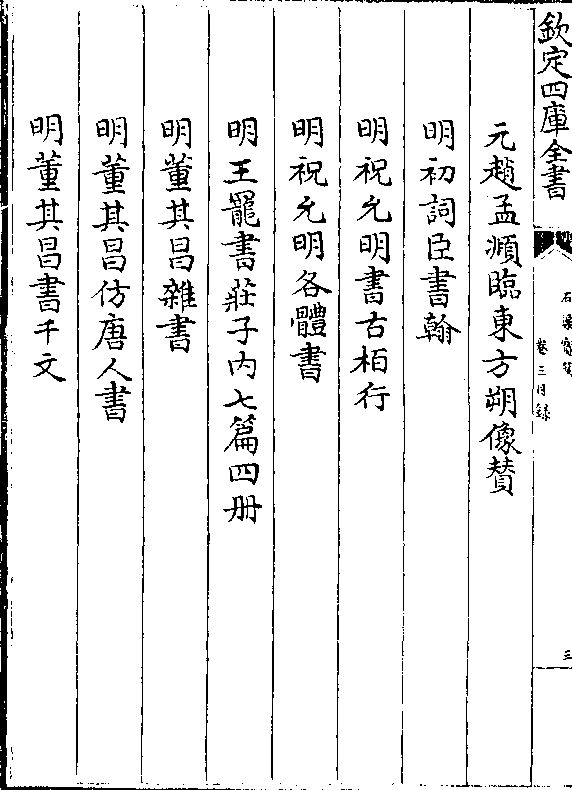 欽定四庫全書
石渠寶笈
卷三目録
三
元趙孟頫臨東方朔像賛
明初詞臣書翰
明祝允明書古栢行
明祝允明各體書
明王寵書莊子内七篇四册
明董其昌雜書
明董其昌仿唐人書
明董其昌書千文